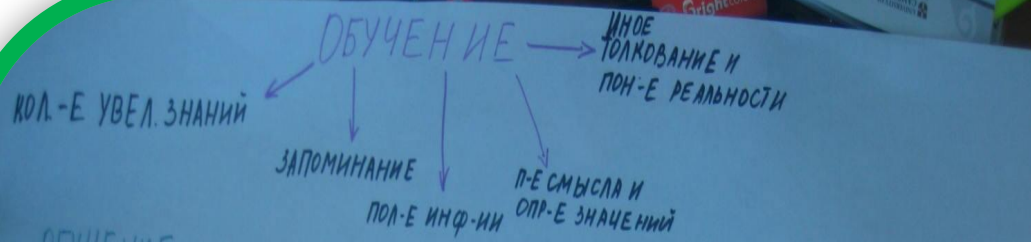 ОБУЧЕНИЕ
ИНОЕ
ТОЛКОВАНИЕ И
ПОН-Е РЕАЛЬНОСТИ
КОЛ.-Е УВЕЛ. ЗНАНИЙ
ЗАПОМИНАНИЕ
ПОЛ-Е ИНФ-ИИ
П-Е СМЫСЛА И
ОПР-Е ЗНАЧЕНИЙ